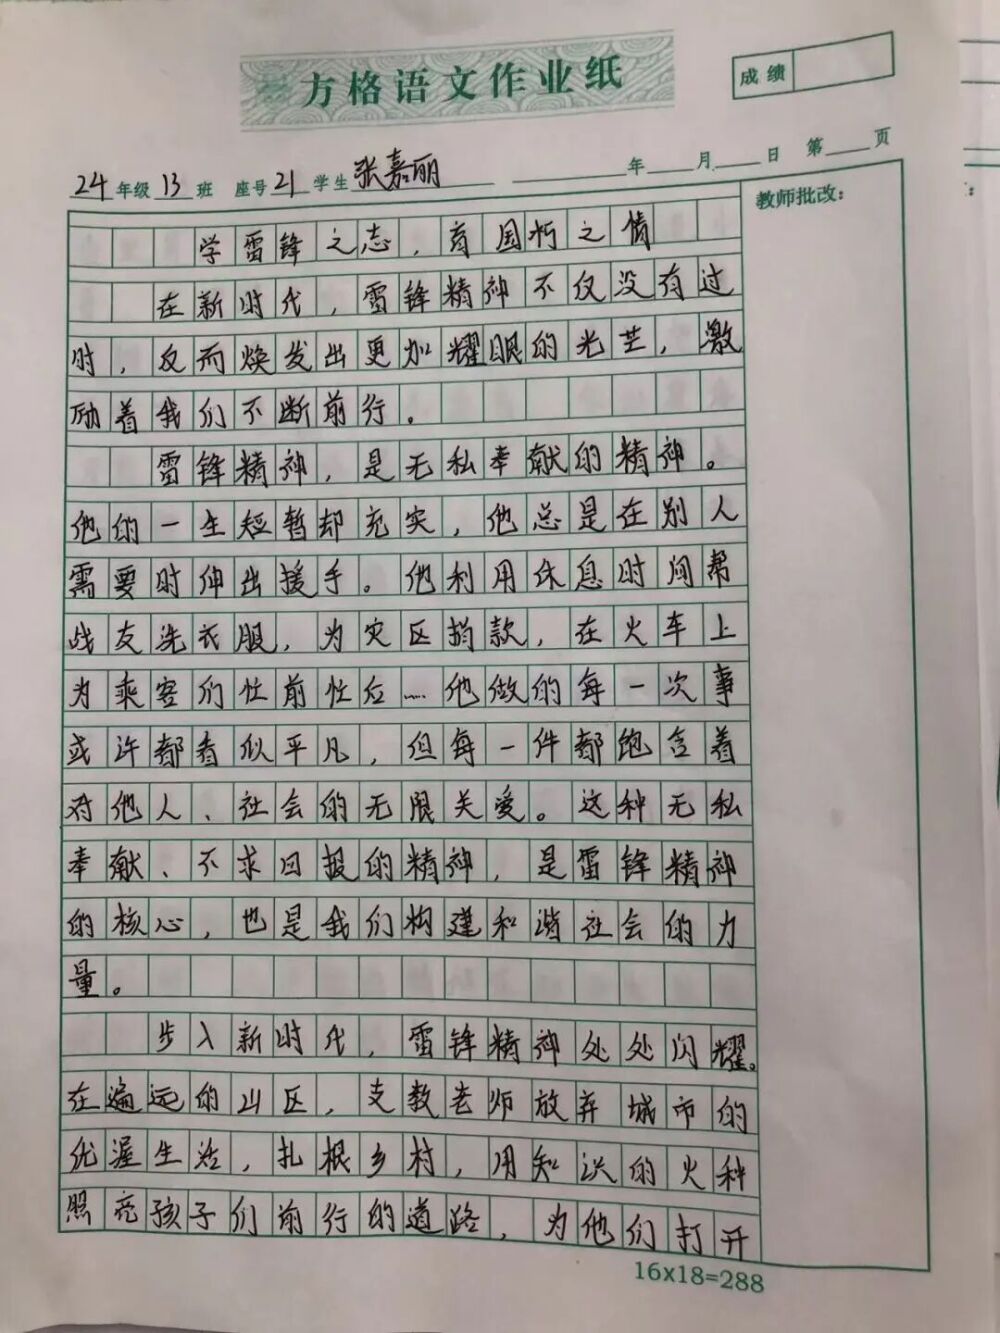 方格语文作业纸
成绩
24年级13班 座号21学生张嘉丽 年 月 日 第 页
教师批改：
学雷锋之志，育国朽之情
在新时代，雷锋精神不仅没有过
时，反而焕发出更加耀眼的光芒，激
励着我们不断前行。
雷锋精神，是无私奉献的精神。
他的一生短暂却充实，他总是在别人
需要时伸出援手。他利用休息时间帮
战友洗衣服，为灾区捐款，在火车上
为乘客们忙前忙后……他做的每一次事
或许都看似平凡，但每一件都饱含着
对他人、社会的无限关爱。这种无私
奉献、不求回报的精神，是雷锋精神
的核心，也是我们构建和谐社会的力
量。
步入新时代，雷锋精神处处闪耀。
在遍远的山区，支教老师放弃城市的
优渥生活，扎根乡村，用知识的火种
照亮孩子们前行的道路，为他们打开
16x18=288